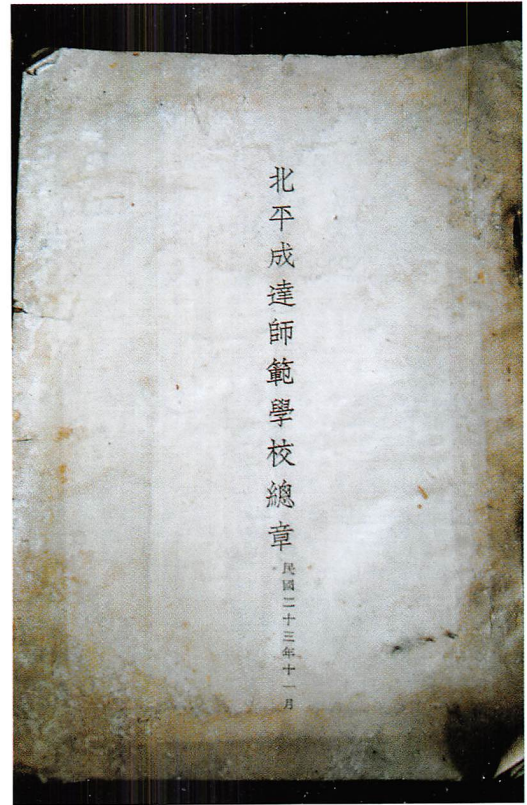 北平成達師範學校總章
民國二十三年十一月